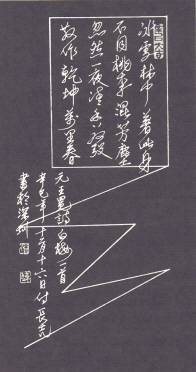 冰雪林中著此身
不同桃李混芳塵
忽然一夜清香發
散作乾坤萬里春
元王冕詩白梅一首
辛巳年十二月十六日付長光
書於深圳